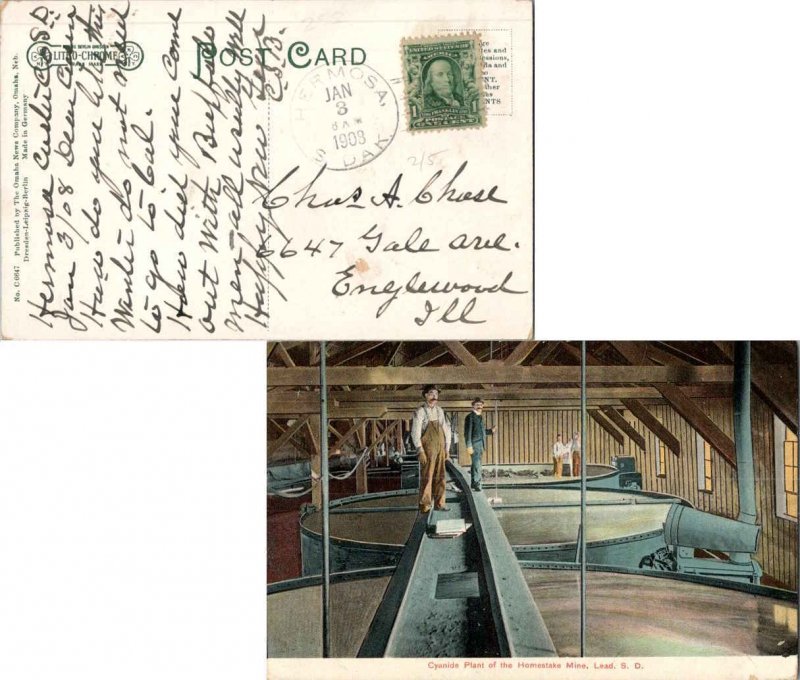 POST CARD
LITHO-CHROME
No. C 6647 Published by The Omaha News Company, Omaha, Neb.
Dresden-Leipzig-Berlin Made in Germany
Hermosa Custer Co S.D.
Jan 3/08 Dear
How do you like this
Winter do not need
to go to Cal.
How did you come
out With Buffalo
men all usually Well
Happy New Year
C.S.B.
HERMOSA,
JAN
3
8 AM
1908
S. DAK
UNITED STATES
2/5
Chas A. Chase
6647 Yale ave.
Englewood
Ill
Cyanide Plant of the Homestake Mine, Lead, S. D.